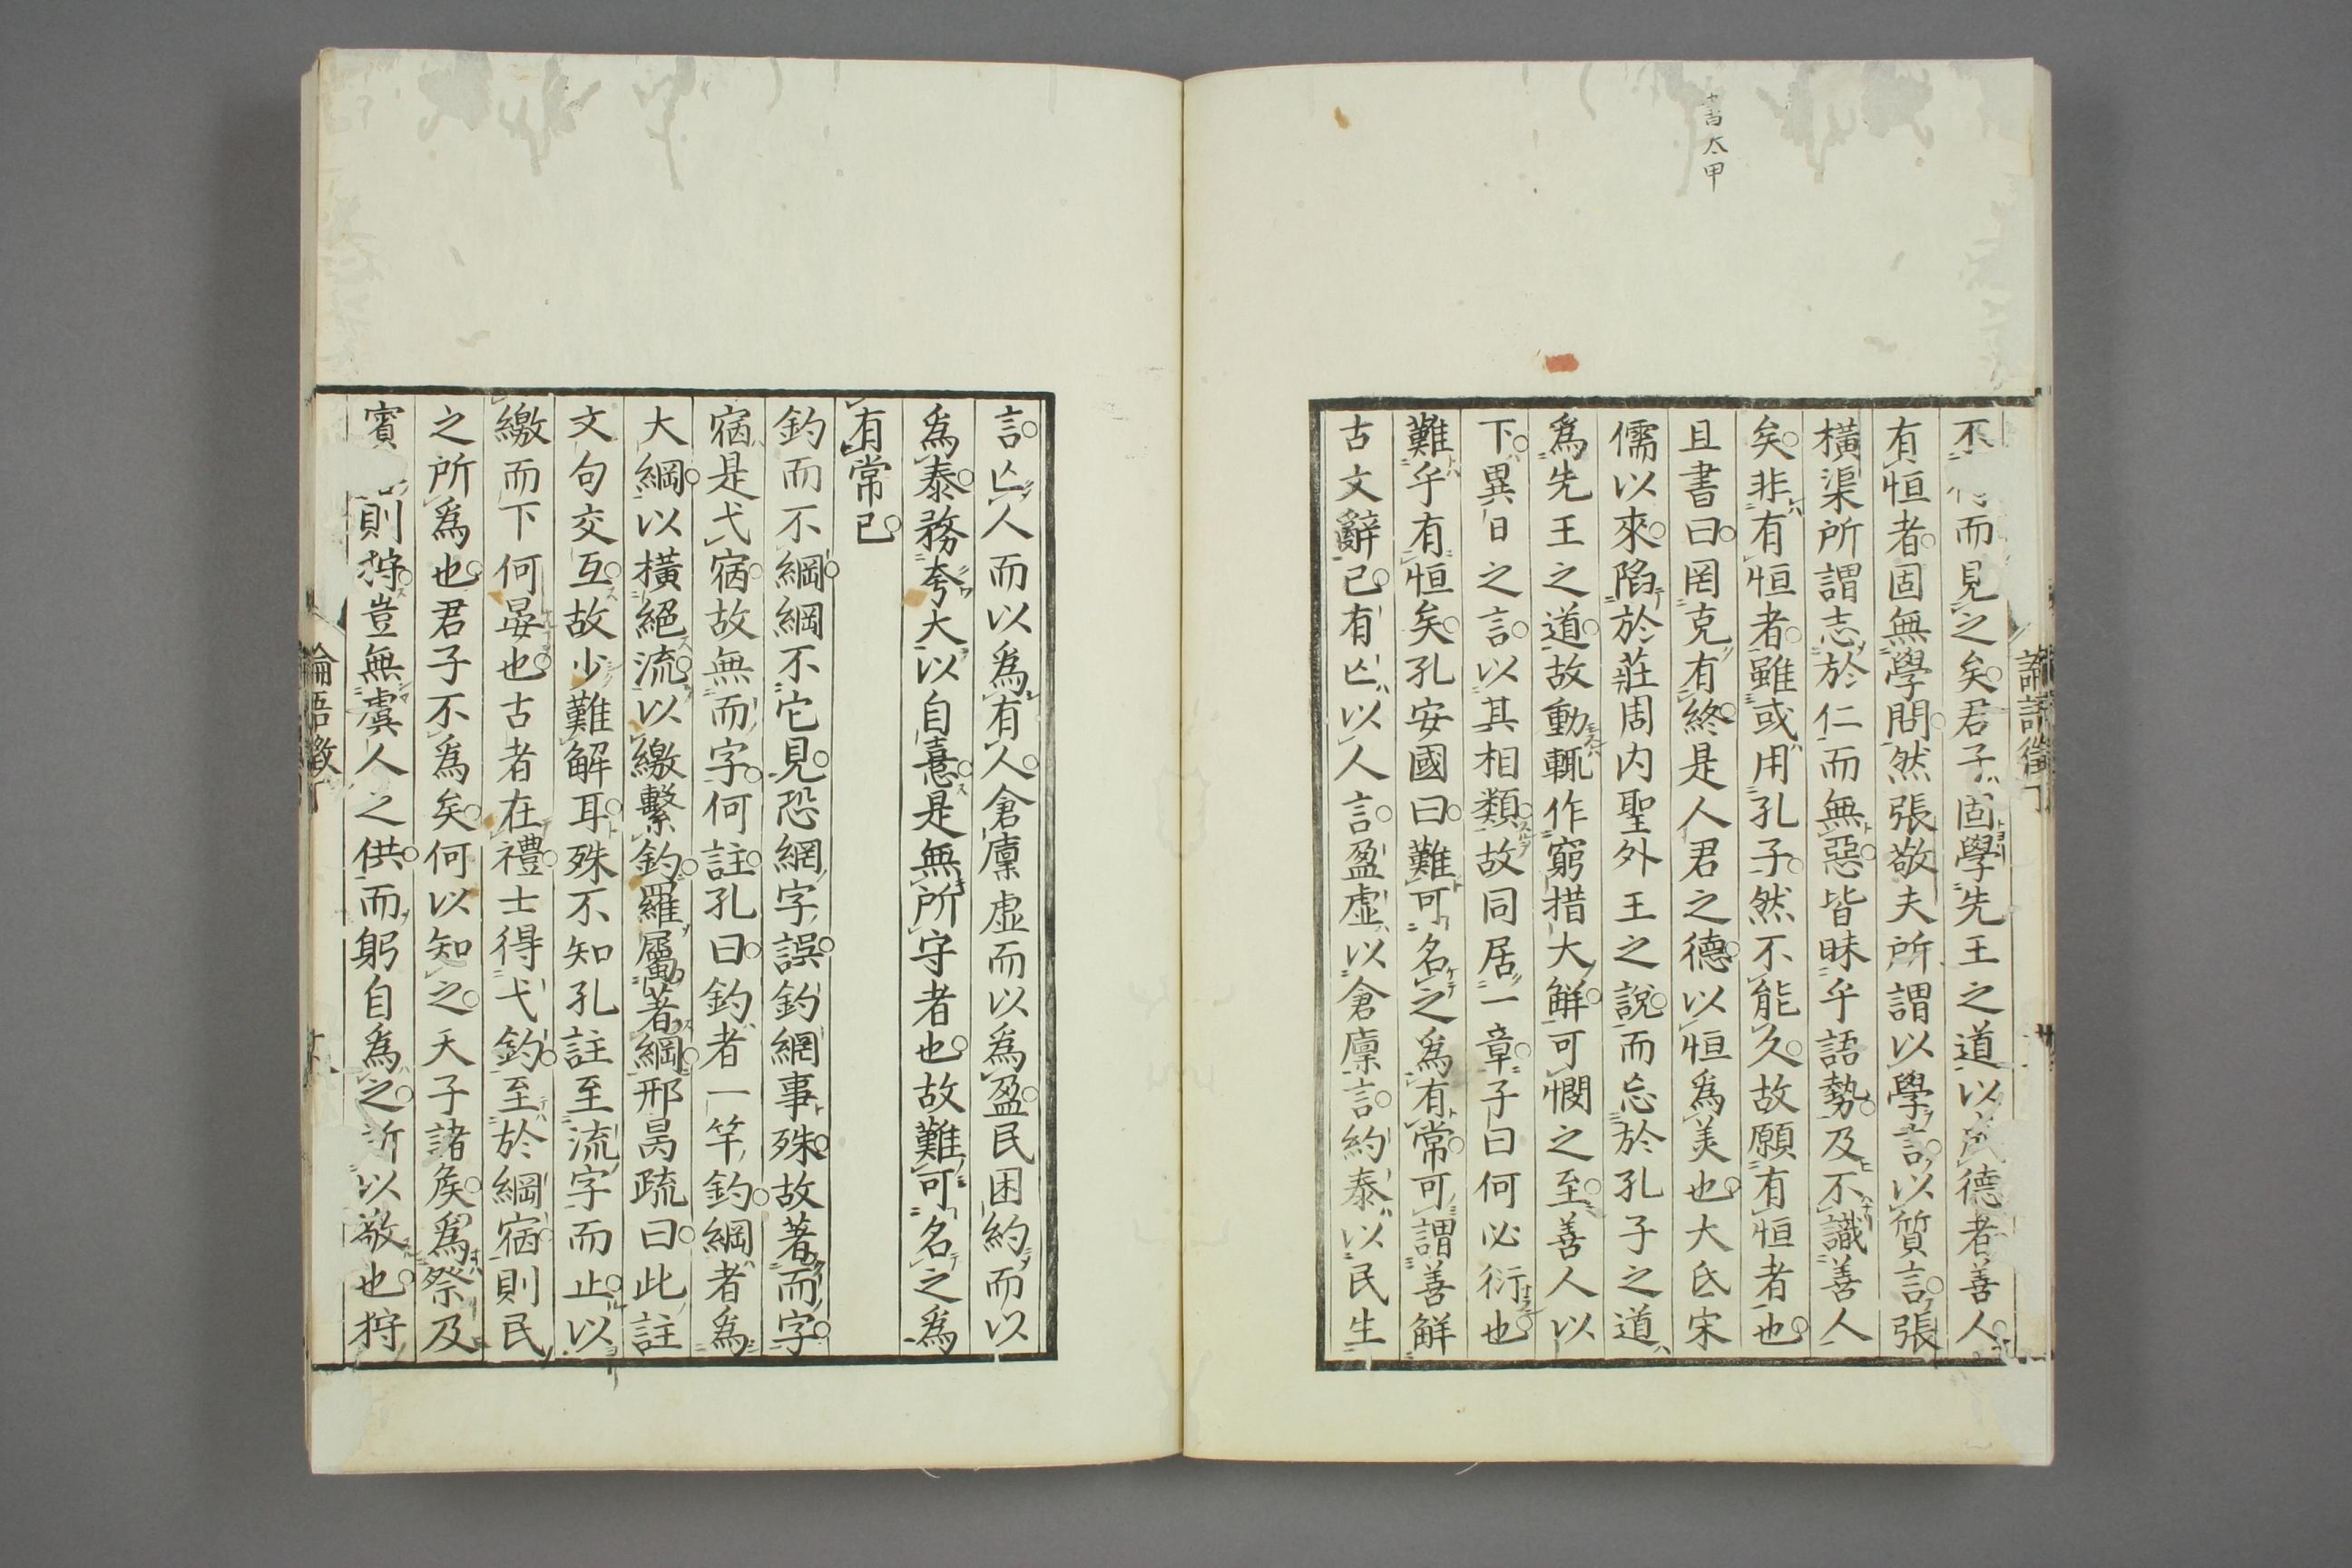 書太甲
不而見之矣君子固學先王之道以成德者善人
有恒者固無學問然張敬夫所謂以學言以質言張
橫渠所謂志於仁而無惡皆昧乎語勢及不識善人
矣非有恒者雖或用孔子然不能久故願有恒者也
且書曰罔克有終是人君之德以恒爲美也大氐宋
儒以來陷於莊周内聖外王之說而忘於孔子之道
爲先王之道故動輒作窮措大解可憫之至善人以
下異日之言以其相類故同居一章子曰何必衍也
難乎有恒矣孔安國曰難可名之爲有常可謂善解
古文辭已有亡以人言盈虛以倉廩言約泰以民生
言亡人而以爲有人倉廩虛而以爲盈民困約而以
爲泰務夸大以自憙是無所守者也故難可名之爲
有常已
釣而不綱綱不它見恐網字誤釣網事殊故著而字
宿是弋宿故無而字何註孔曰釣者一竿釣綱者爲
大綱以橫絕流以繳繫釣羅屬著綱邢昺疏曰此註
文句交互故少難解耳殊不知孔註至流字而止以
繳而下何晏也古者在禮士得弋釣至於綱宿則民
之所爲也君子不爲矣何以知之天子諸侯爲祭及
賓則狩豈無虞人之供而躬自爲之所以敬也狩
論語徵丁